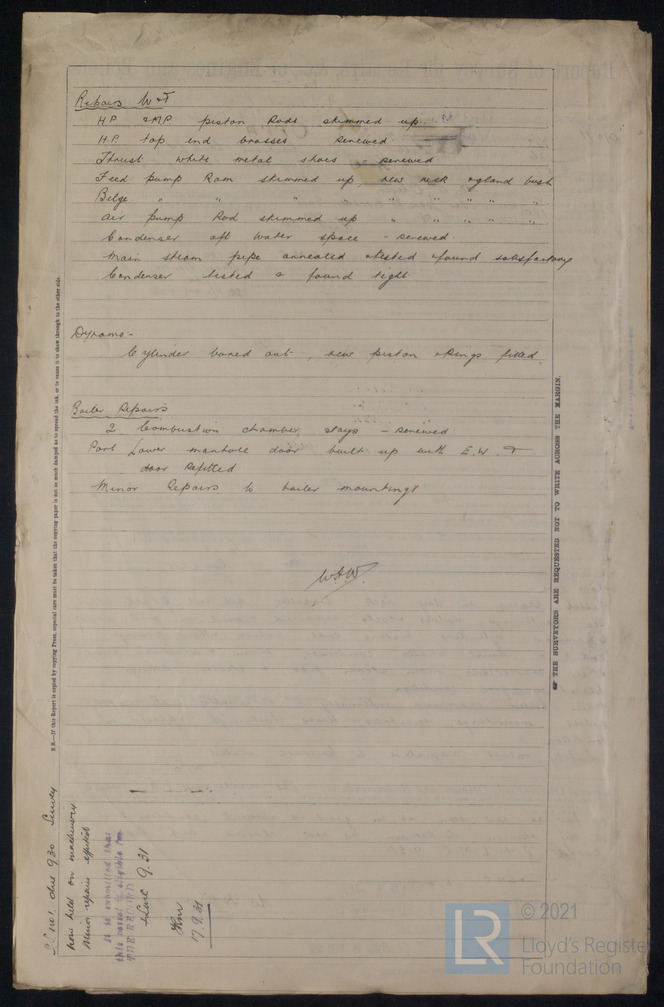 Repairs W & T
H.P. & M.P. piston Rods skimmed up
H.P. top end brasses renewed
Thrust white metal shoes - renewed
Feed pump Ram skimmed up, new neck & gland bush
Bilge " " " " " " " "
Air pump Rod skimmed up " " " " "
Condenser aft water space - renewed
Main steam pipe annealed & tested & found satisfactory
Condenser tested & found tight
Dynamo -
Cylinder bored out, new piston & rings fitted.
Boiler Repairs
2 Combustion chamber stays - renewed
Port Lower manhole door built up with E.W. &
door refitted
Minor Repairs to boiler mountings
N.B.—If this Report is copied by copying Press, especial care must be taken that the copying paper is not so much damped as to spread the ink, or to cause it to show through to the other side.
THE SURVEYORS ARE REQUESTED NOT TO WRITE ACROSS THE MARGIN.
due 9.30 Survey
now held on machinery
Minor repairs effected
It is submitted that
this vessel is eligible for
THE RECORD
9.31
17.9.31
LR
© 2021
Lloyd's Register
Foundation